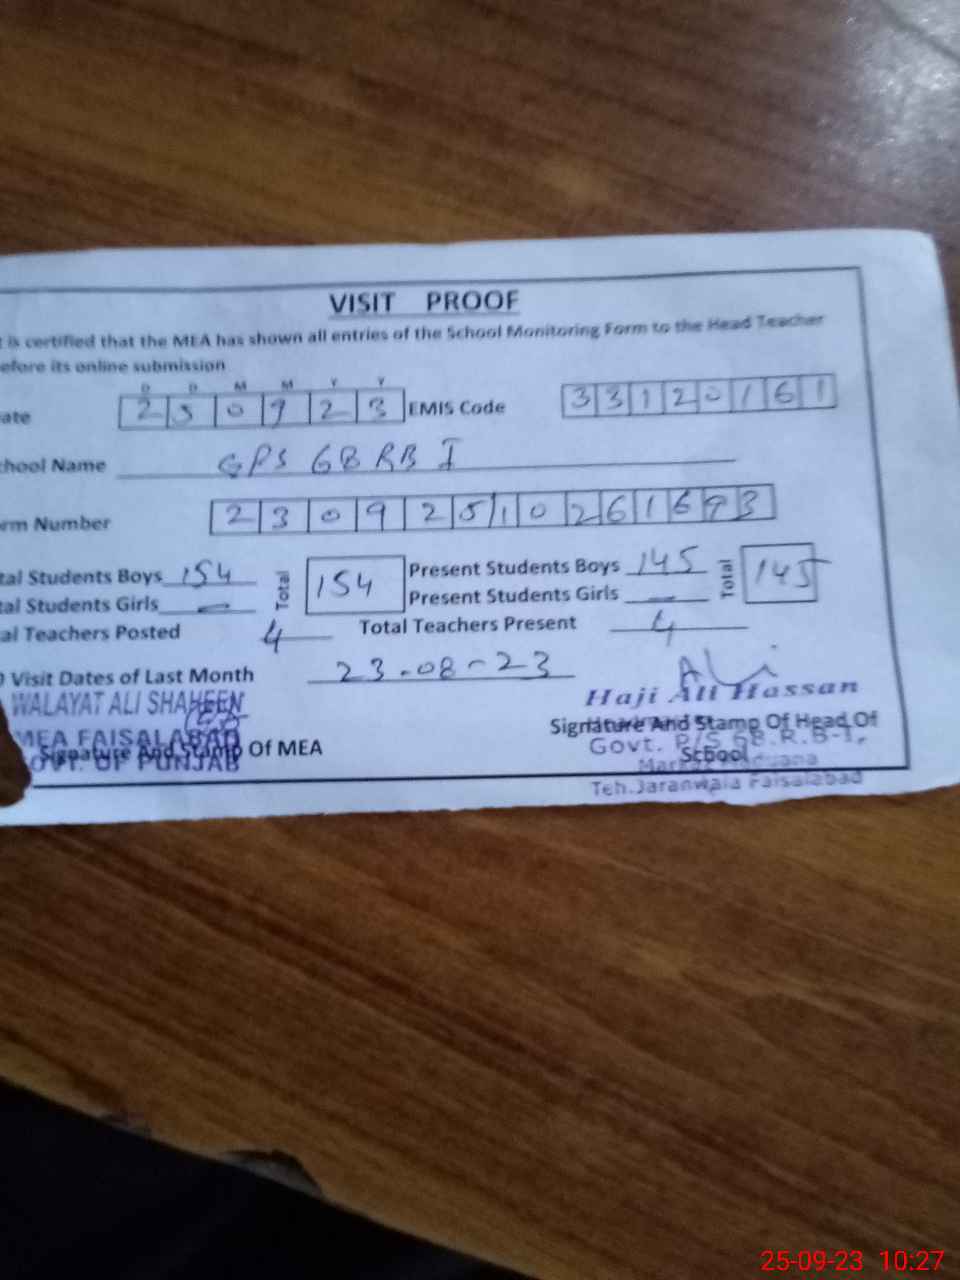 VISIT PROOF
t is certified that the MEA has shown all entries of the School Monitoring Form to the Head Teacher
efore its online submission
D D M M Y Y
ate 2 5 0 9 2 3 EMIS Code 3 3 1 2 0 1 6 1
chool Name GPS 68 RB I
rm Number 2 3 0 9 2 5 1 0 2 6 1 6 9 3
tal Students Boys 154 Total 154 Present Students Boys 145 Total 145
tal Students Girls — Present Students Girls —
al Teachers Posted 4 Total Teachers Present 4
Visit Dates of Last Month 23-08-23
Ali
WALAYAT ALI SHAHEEN
Haji Ali Hassan
MEA FAISALABAD
Signature And Stamp Of MEA
GOVT. OF PUNJAB
Signature And Stamp Of Head Of
Govt. P/S 68.R.B-I,
School
Teh.Jaranwala Faisalabad
25-09-23 10:27